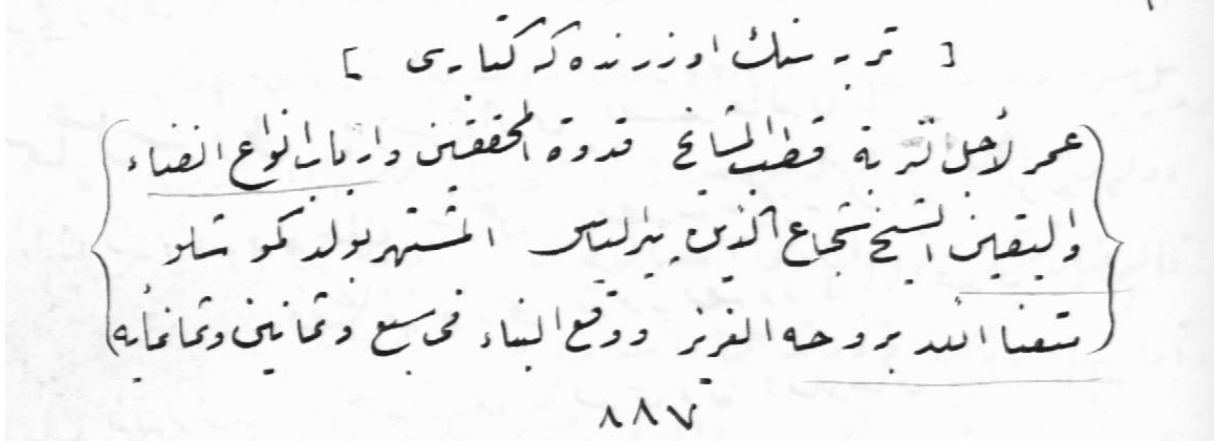 [ تربه سنك اوزرنده كه كتابه سی ]
عمر لأجل التربة قطب المشايخ قدوة المحققين وارباب انواع الفناء
واليقين الشيخ شجاع الدين پير الياس المشتهر بولد كو شلو
متعنا الله بروحه العزيز ووقع البناء فى سبع وثمانين وثمانمأيه
٨٨٧